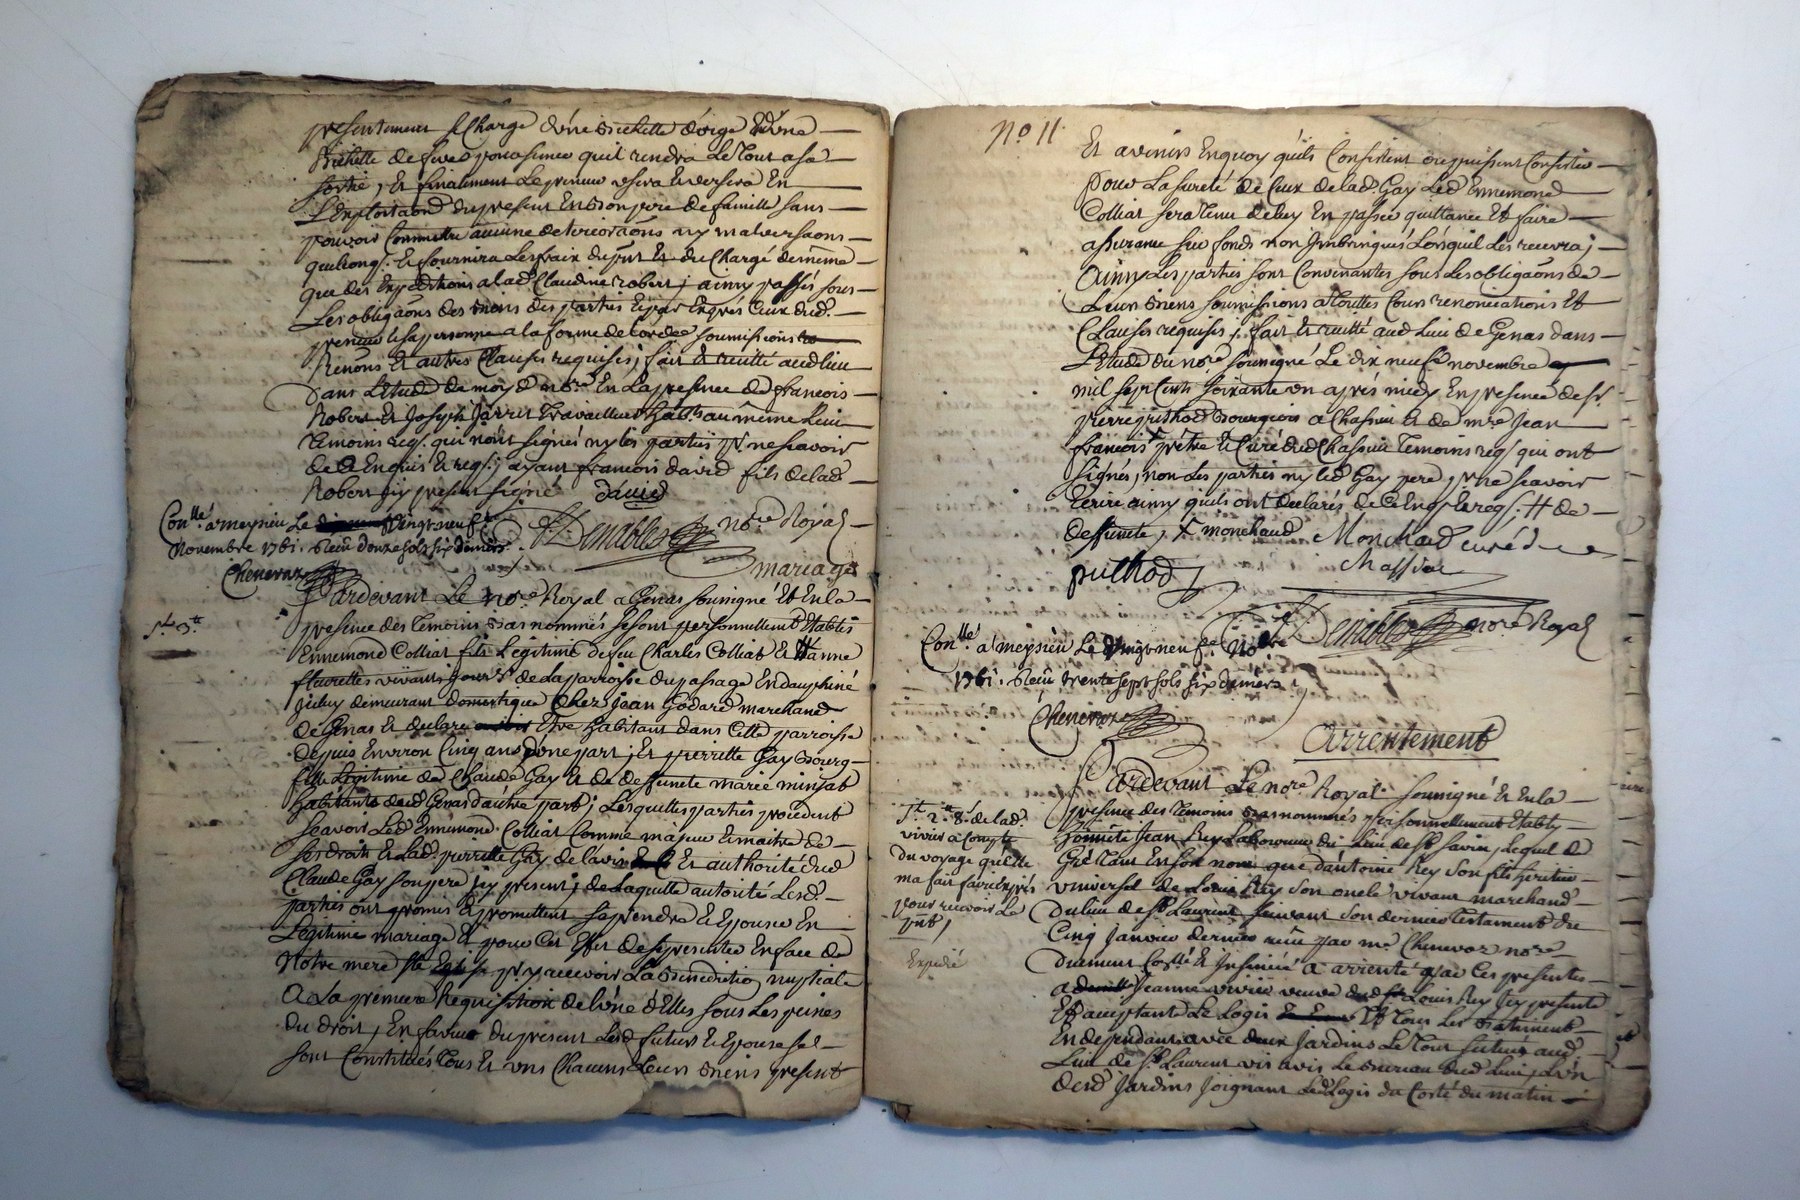 presentement se Charge d'une bichette d'orge Et d'une
Bichette de feves pour semer qu'il rendra Le Tout a sa
sortie, Et finalement Le preneur usera Et versera En
L'Exploitaõn du present En bon pere de famille sans
pouvoir Commettre aucune deteriorãons ny malversaõns
quelconq. Et fournira Les fraix du pnt Et du Chargé de meme
que des Expeditions a lad Claudine robert; ainsy passés sous
Les obligaõns des biens des parties Et par Exprés Ceux dud.
preneur Et sa personne a la forme de l'ordce soumissions
Renons Et autres Clauses requises; fait Et recitté aud lieu
Dans L'Etude de moy d. nore. En La presence de francois
Robert Et Joseph Travailleurs habts au même Lieu
Temoins req. qui n'ont signés ny les parties pr. ne scavoir
de Ce Enquis Et req; ayant francois david fils de lad
Robert icy present signé david
Conllé a meysieu Le vingt neuf
Novembre 1761. Reçu douze sols six deniers.
Chenevaz
Demables nore Royal
mariage
Pardevant Le nore Royal a Genas soussigné Et En la
presence des Temoins bas nommés se sont personnellement Etablis
Ennemond Colliat fils Legitime de feu Charles Colliat Et H anne
fleurettes vivants jours de La parroisse du passage En dauphiné
iceluy demeurant domestique Chez Jean Godard marchand
de Genas Et declare Etre habitant dans Cette parroisse
depuis Environ Cinq ans d'une part; Et pierrette Gay
fille Legitime de Claude Gay Et de deffuncte marie minjat
habitants dud Genas d'autre part; Lesquelles parties procedent
scavoir Led Ennemond Colliat Comme majeur Et maitre de
ses droits Et Lad. pierrette Gay de l'avis Et authorité dud
Claude Gay son pere icy present; de Laquelle autorité Lesd.
parties ont promis Et promettent se prendre Et Epouser En
Legitime mariage Et pour Cet Effet de se presenter En face de
Notre mere Ste Eglise pr. y recevoir La Benediction nuptiale
a La premiere Requisition de l'une d'Elles sous Les peines
du droit, En faveur du present Lesd futurs Et Epouse se
sont Constitués Tous Et uns Chacuns Leurs biens present
No. 11
Et avenirs En quoy qu'ils Consistent ou puissent Consister
Pour La sureté de Ceux de lad. Gay Led Ennemond
Colliat sera Tenu de luy En passer quittance Et faire
assurance sur fonds non Imbringués Lorsquil Les recevra;
Ainsy Les parties sont Convenantes sous Les obligaõns de
Leurs biens soumissions a Touttes Cours renonciations Et
Clauses requises; fait Et recitté aud Lieu de Genas dans
L'Etude du nore. soussigné Le dix neufe. novembre
mil sept Cents soixante un aprés midy En presence de sr.
pierre puthod Bourgeois a Chassieu Et de mre Jean
francois prêtre Et Curé dud Chassieu Temoins req. qui ont
signés, non Les parties ny led Gay pere pr. ne scavoir
Ecrire ainsy qu'ils ont declarés de Ce Enqs Et req. H de
deffuncte, monchaud Monchaud curé de
puthod Chassieu
Demables nore Royal
Conllé. a meysieu Le vingt neufe. Nobre
1761. Reçu trente sept sols six deniers
Chenevaz
Arrentement
Pardevant Le nore Royal soussigné Et En la
presence des Temoins bas nommés personnellement Etably
honnete Jean Rey Laboureur du Lieu de St Savin, Lequel de
Gré Tant En son nom que d'antoine Rey son fils heritier
universel de Louis Rey son oncle vivant marchand
du lieu de St Laurent suivant son dernier Testament du
Cinq Janvier dernier reçu par me Chenevaz nore
duement Collé. Et Insinué a arrenté par Ces presentes
a Jeanne vivier veuve dud Louis Rey icy presente
Et acceptante Le Logis Et Tous Les batiments
En dependants avec deux Jardins Le Tout situés aud.
Lieu de St Laurent vis avis Le bureau dud Lieu, L'un
desd Jardins Joignant Led Logis du Coté du matin
2. 8. de lad.
vivier a Compte
du voyage qu'Elle
ma fait faire Exprés
pour recevoir Le
pnt,
Expedié